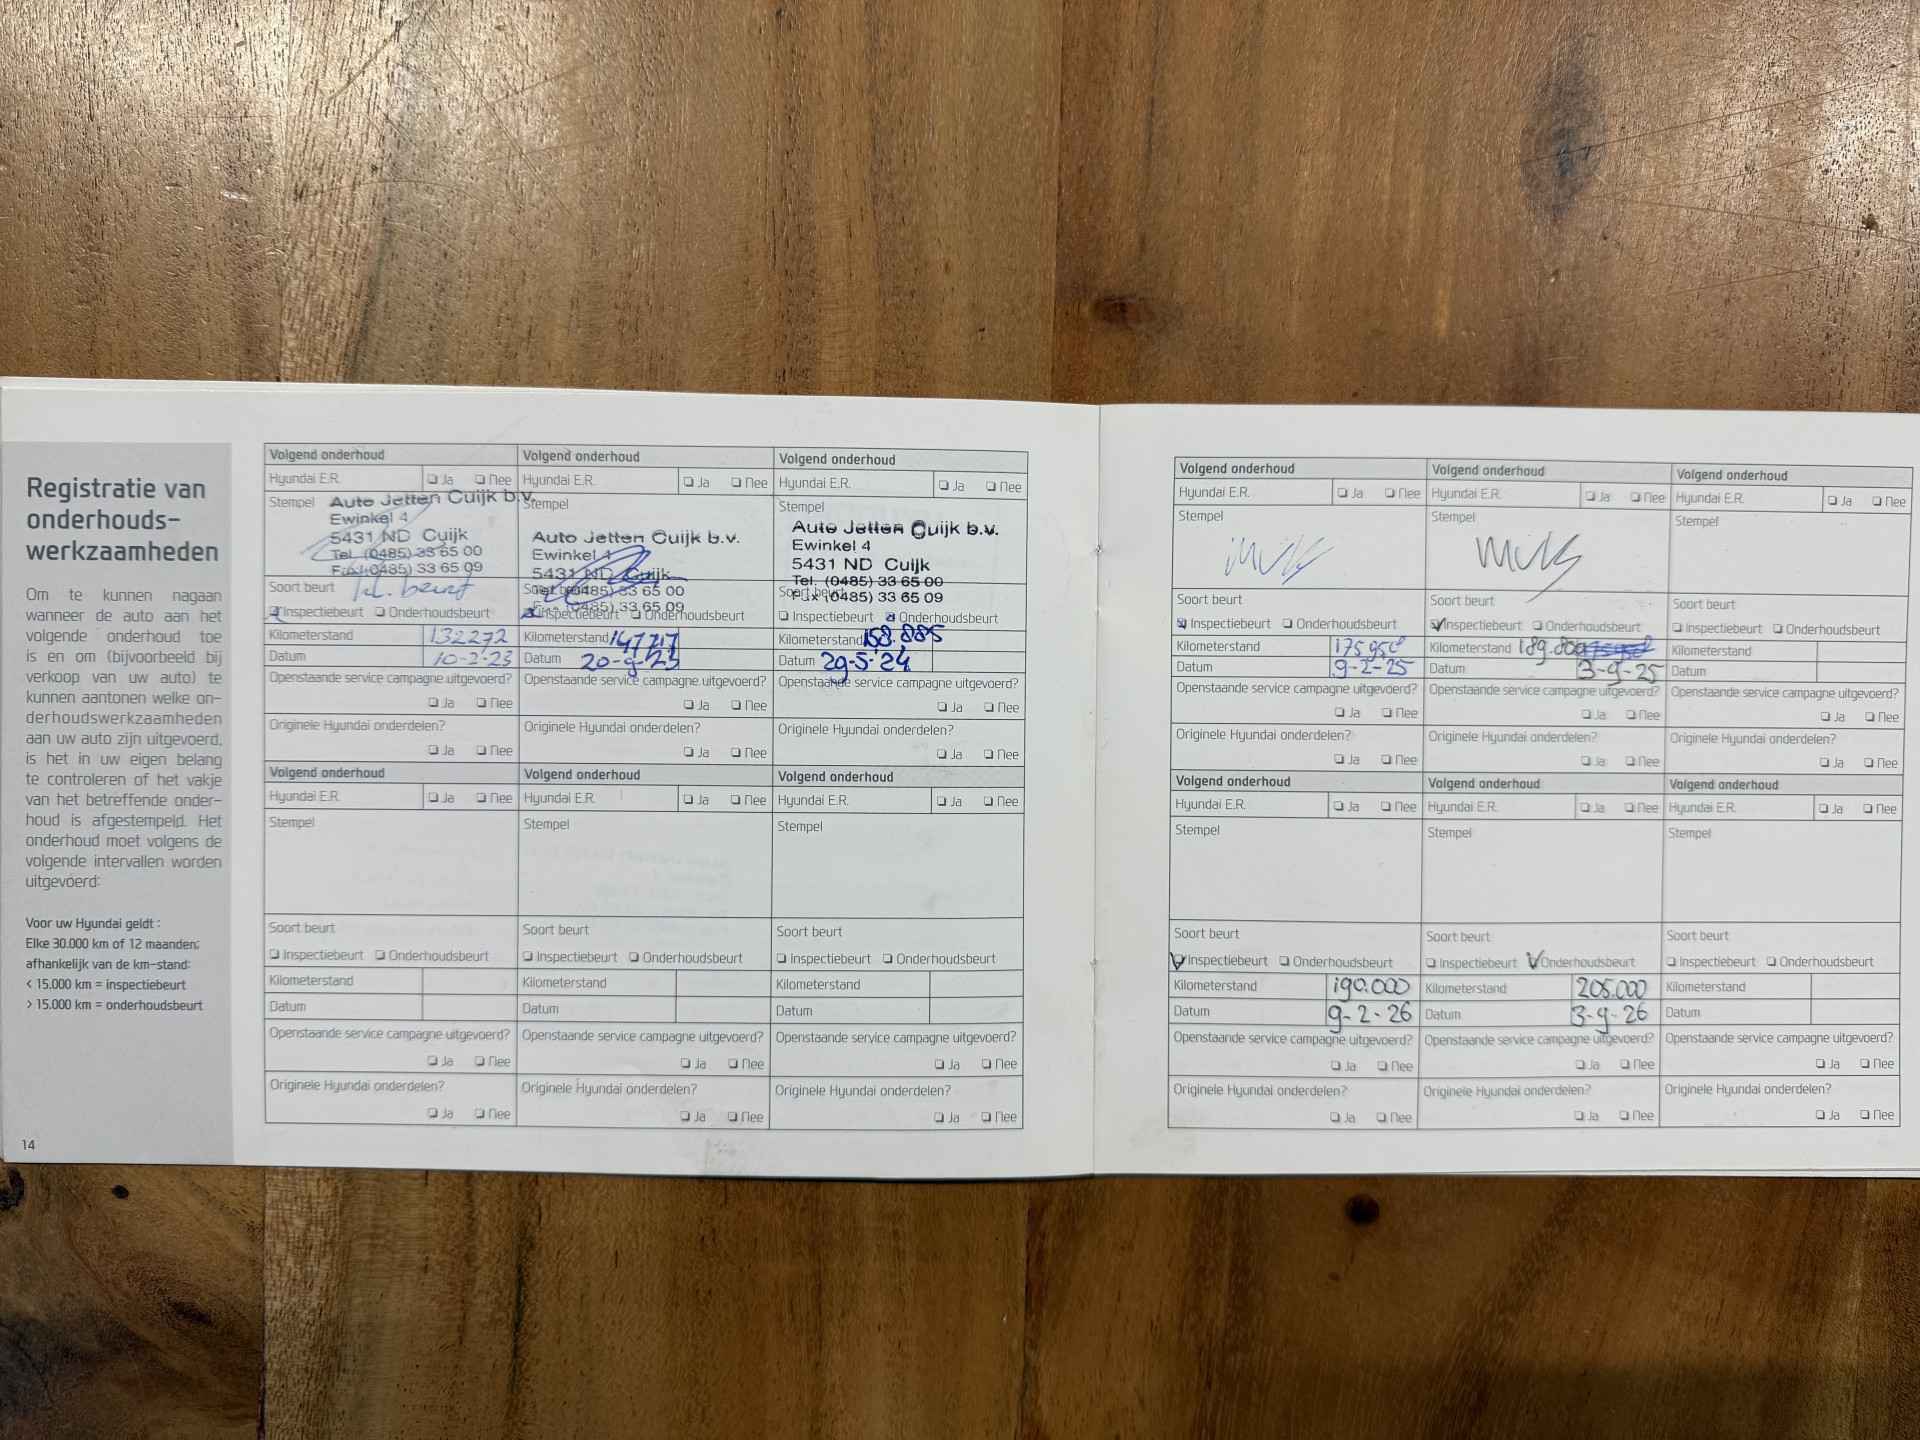 Registratie van
onderhouds-
werkzaamheden
Om te kunnen nagaan
wanneer de auto aan het
volgende onderhoud toe
is en om (bijvoorbeeld bij
verkoop van uw auto) te
kunnen aantonen welke on-
derhoudswerkzaamheden
aan uw auto zijn uitgevoerd,
is het in uw eigen belang
te controleren of het vakje
van het betreffende onder-
houd is afgestempeld. Het
onderhoud moet volgens de
volgende intervallen worden
uitgevoerd:
Voor uw Hyundai geldt :
Elke 30.000 km of 12 maanden;
afhankelijk van de km-stand:
< 15.000 km = inspectiebeurt
> 15.000 km = onderhoudsbeurt
14
Volgend onderhoud
Hyundai E.R. Ja Nee
Stempel
Auto Jetten Cuijk b.v.
Ewinkel 4
5431 ND Cuijk
Tel. (0485) 33 65 00
Fax (0485) 33 65 09
Soort beurt kl. beurt
Inspectiebeurt Onderhoudsbeurt
Kilometerstand 132272
Datum 10-2-23
Openstaande service campagne uitgevoerd?
Ja Nee
Originele Hyundai onderdelen?
Ja Nee
Volgend onderhoud
Hyundai E.R. Ja Nee
Stempel
Auto Jetten Cuijk b.v.
Ewinkel 4
5431 ND Cuijk
Tel. (0485) 33 65 00
Fax (0485) 33 65 09
Soort beurt
Inspectiebeurt Onderhoudsbeurt
Kilometerstand 147717
Datum 20-9-23
Openstaande service campagne uitgevoerd?
Ja Nee
Originele Hyundai onderdelen?
Ja Nee
Volgend onderhoud
Hyundai E.R. Ja Nee
Stempel
Auto Jetten Cuijk b.v.
Ewinkel 4
5431 ND Cuijk
Tel. (0485) 33 65 00
Fax (0485) 33 65 09
Soort beurt
Inspectiebeurt Onderhoudsbeurt
Kilometerstand 158.885
Datum 29-5-24
Openstaande service campagne uitgevoerd?
Ja Nee
Originele Hyundai onderdelen?
Ja Nee
Volgend onderhoud
Hyundai E.R. Ja Nee
Stempel
Soort beurt
Inspectiebeurt Onderhoudsbeurt
Kilometerstand
Datum
Openstaande service campagne uitgevoerd?
Ja Nee
Originele Hyundai onderdelen?
Ja Nee
Volgend onderhoud
Hyundai E.R. Ja Nee
Stempel
Soort beurt
Inspectiebeurt Onderhoudsbeurt
Kilometerstand
Datum
Openstaande service campagne uitgevoerd?
Ja Nee
Originele Hyundai onderdelen?
Ja Nee
Volgend onderhoud
Hyundai E.R. Ja Nee
Stempel
Soort beurt
Inspectiebeurt Onderhoudsbeurt
Kilometerstand
Datum
Openstaande service campagne uitgevoerd?
Ja Nee
Originele Hyundai onderdelen?
Ja Nee
Volgend onderhoud
Hyundai E.R. Ja Nee
Stempel
Soort beurt
Inspectiebeurt Onderhoudsbeurt
Kilometerstand
Datum 9-2-25
Openstaande service campagne uitgevoerd?
Ja Nee
Originele Hyundai onderdelen?
Ja Nee
Volgend onderhoud
Hyundai E.R. Ja Nee
Stempel
Soort beurt
Inspectiebeurt Onderhoudsbeurt
Kilometerstand
Datum 3-9-25
Openstaande service campagne uitgevoerd?
Ja Nee
Originele Hyundai onderdelen?
Ja Nee
Volgend onderhoud
Hyundai E.R. Ja Nee
Stempel
Soort beurt
Inspectiebeurt Onderhoudsbeurt
Kilometerstand
Datum
Openstaande service campagne uitgevoerd?
Ja Nee
Originele Hyundai onderdelen?
Ja Nee
Volgend onderhoud
Hyundai E.R. Ja Nee
Stempel
Soort beurt
Inspectiebeurt Onderhoudsbeurt
Kilometerstand 190.000
Datum 9-2-26
Openstaande service campagne uitgevoerd?
Ja Nee
Originele Hyundai onderdelen?
Ja Nee
Volgend onderhoud
Hyundai E.R. Ja Nee
Stempel
Soort beurt
Inspectiebeurt Onderhoudsbeurt
Kilometerstand 205.000
Datum 3-9-26
Openstaande service campagne uitgevoerd?
Ja Nee
Originele Hyundai onderdelen?
Ja Nee
Volgend onderhoud
Hyundai E.R. Ja Nee
Stempel
Soort beurt
Inspectiebeurt Onderhoudsbeurt
Kilometerstand
Datum
Openstaande service campagne uitgevoerd?
Ja Nee
Originele Hyundai onderdelen?
Ja Nee